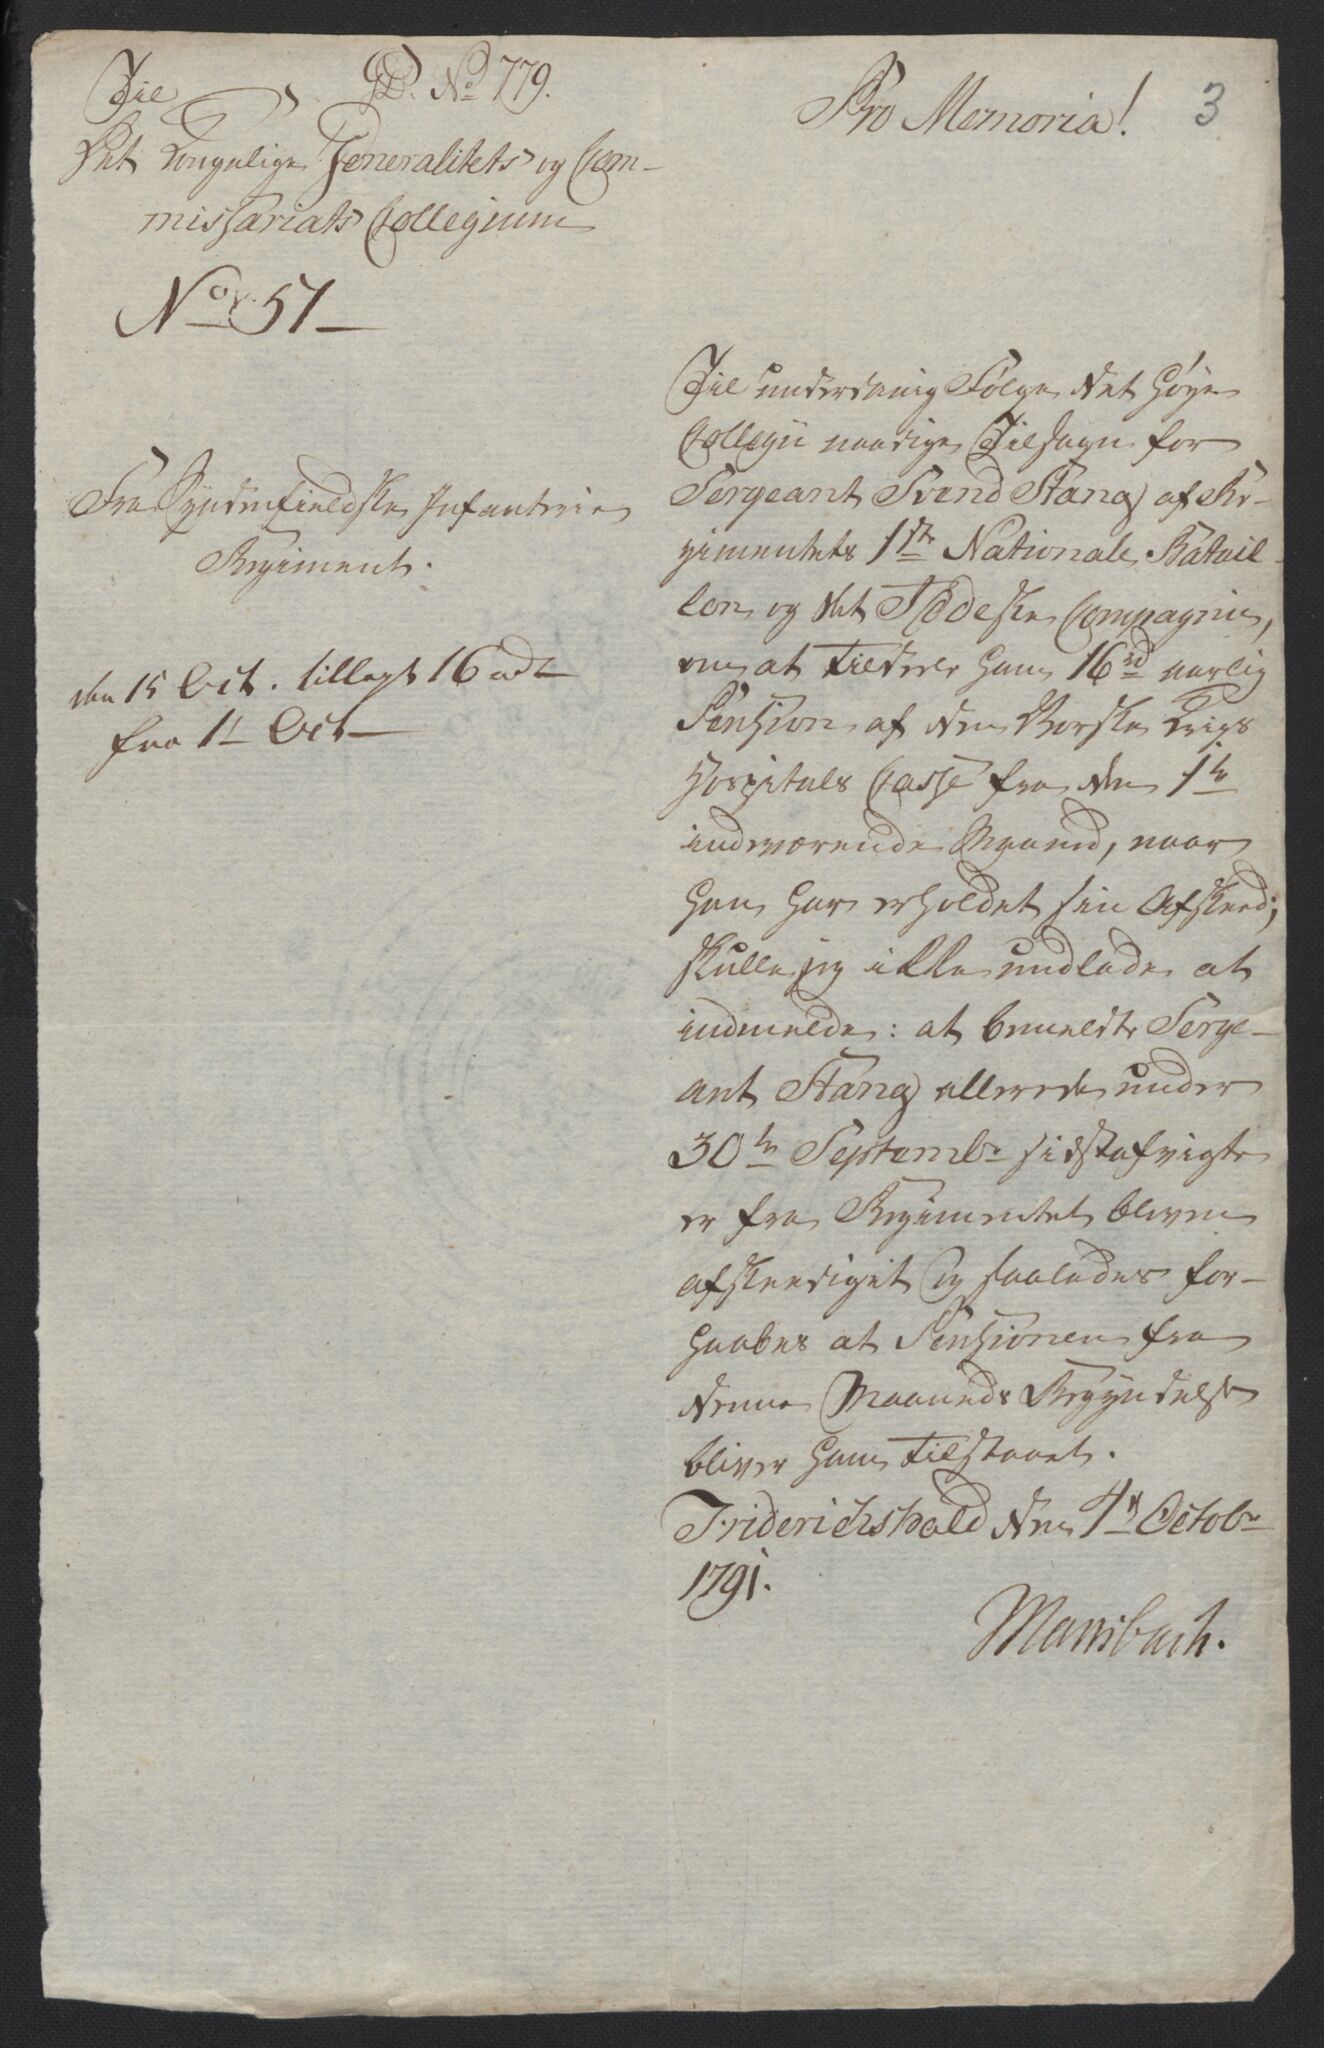 Til
D. No 779.
Det Kongelige Generalitets og Com-
missariats Collegium
No 51
Fra Syndenfieldske Infanterie
Regiment.
den 15 Oct. tillagt 16 rdl
fra 1t Oct
Pro Memoria!
3
Til underdanig Følge det høye
Collegii naadige Tilsagn for
Sergeant Svend Stang af Re-
gimentets 1ste Nationale Batail-
lon og det Rødeske Compagnie,
om at tildeele ham 16 rd aarlig
Pension af den Norske Krigs
Hospitals Casse fra den 1te
indeværende Maaned, naar
han har erholdet sin Afskeed;
skulle jeg ikke undlade at
indmelde: at bemeldte Serge-
ant Stang allerede under
30te Septembr sidstafvigte
er fra Regimentet bleven
afskeediget og saaledes for-
haabes at Pensionen fra
denne Maaneds Begyndelse
bliver ham tilstaaet.
Friderichshald den 4de Octobr
1791.
Mansbach.